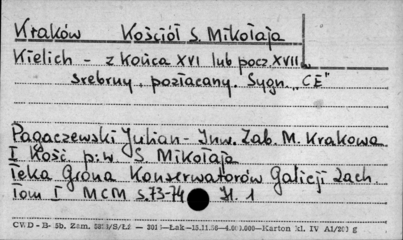 Kraków Kościół S. Mikołaja
Kielich - z końca XVI lub pocz. XVII w.
srebrny, pozłacany. Sygn. "CE"
Pagaczewski Julian - Inw. Zab. M. Krakowa
I Kość. p.w. S. Mikołaja
Teka Grona Konserwatorów Galicji Zach.
Tom I MCM S.73-74 Il. 1
CWD - B- 5b. Zam. Łak — 4.000.000—Karton kl. IV A1/